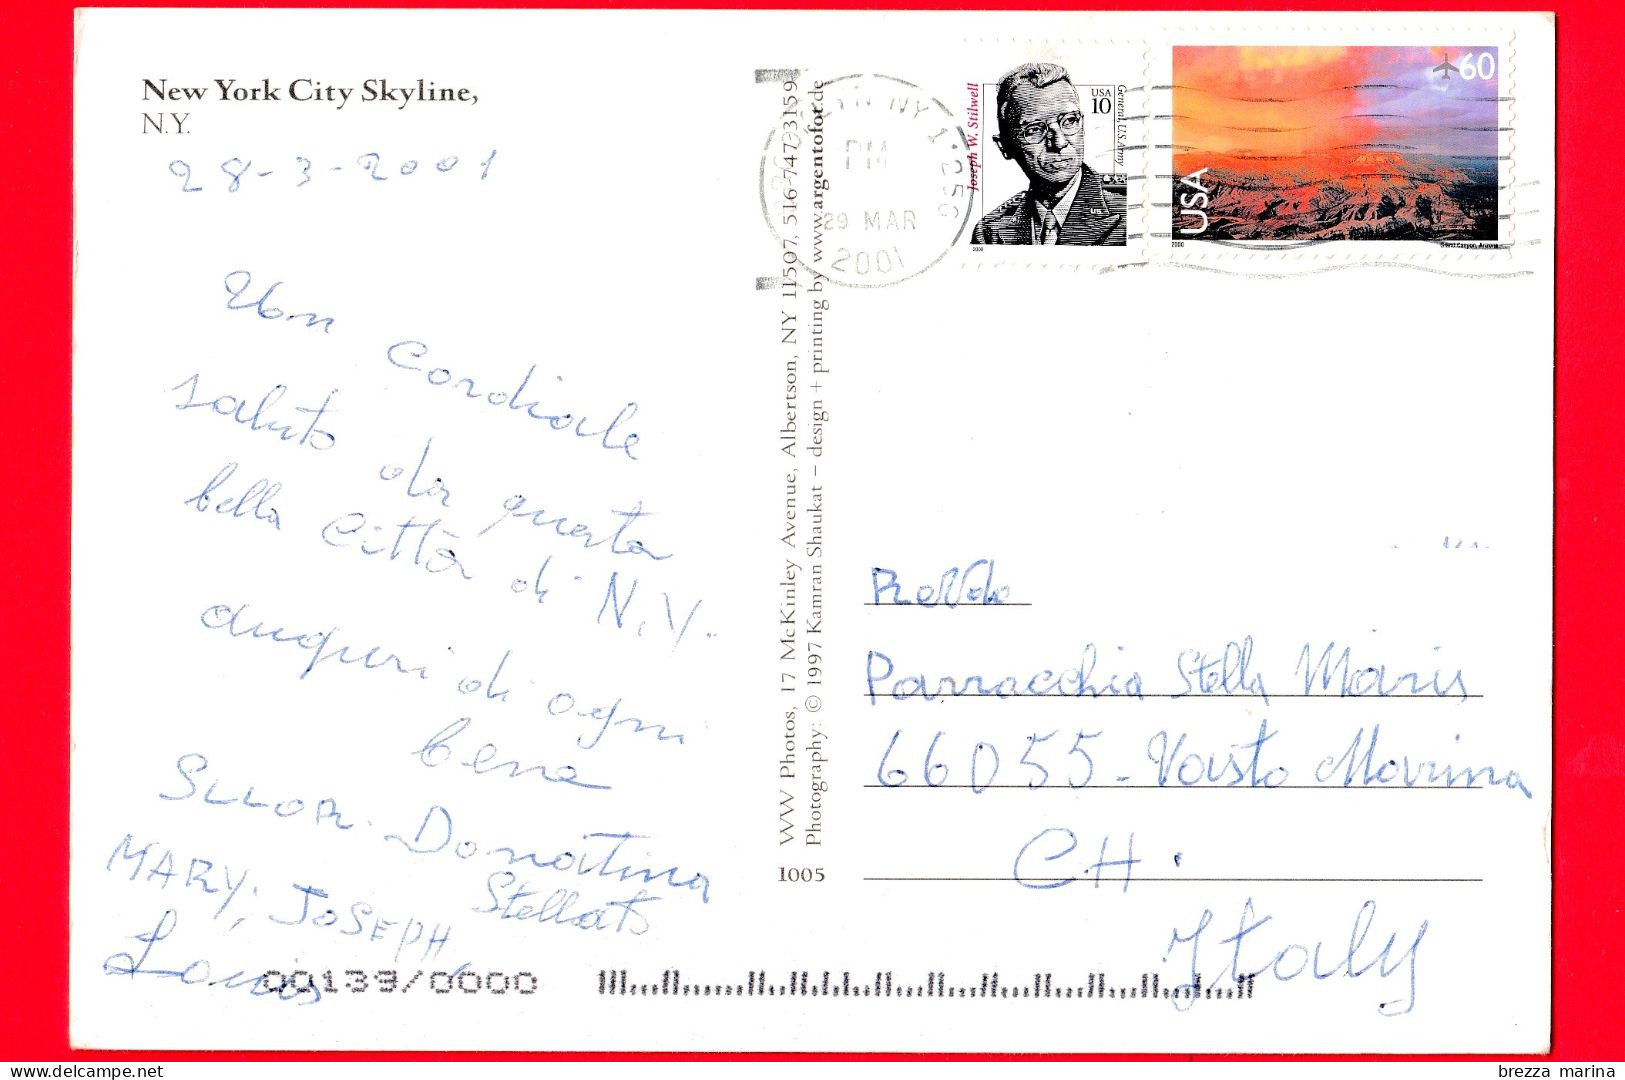 New York City Skyline,
N.Y.
28-3-2001
Un cordiale
saluto da questa
bella Città di N.Y.
auguri di ogni
bene
Donatina
Stellato
MARY, JOSEPH,
Louis
00133/0000
WW Photos, 17 McKinley Avenue, Albertson, NY 11507, 516-747-3159
Photography: © 1997 Kamran Shaukat – design + printing by www.argentofot.de
1005
NY 1·256
PM
29 MAR
2001
Joseph W. Stilwell
USA
10
General, U.S. Army
2000
60
USA
2000
Grand Canyon, Arizona
Parracchia Stella Maris
66055 - Vasto Marina
CH.
Italy
brezza marina